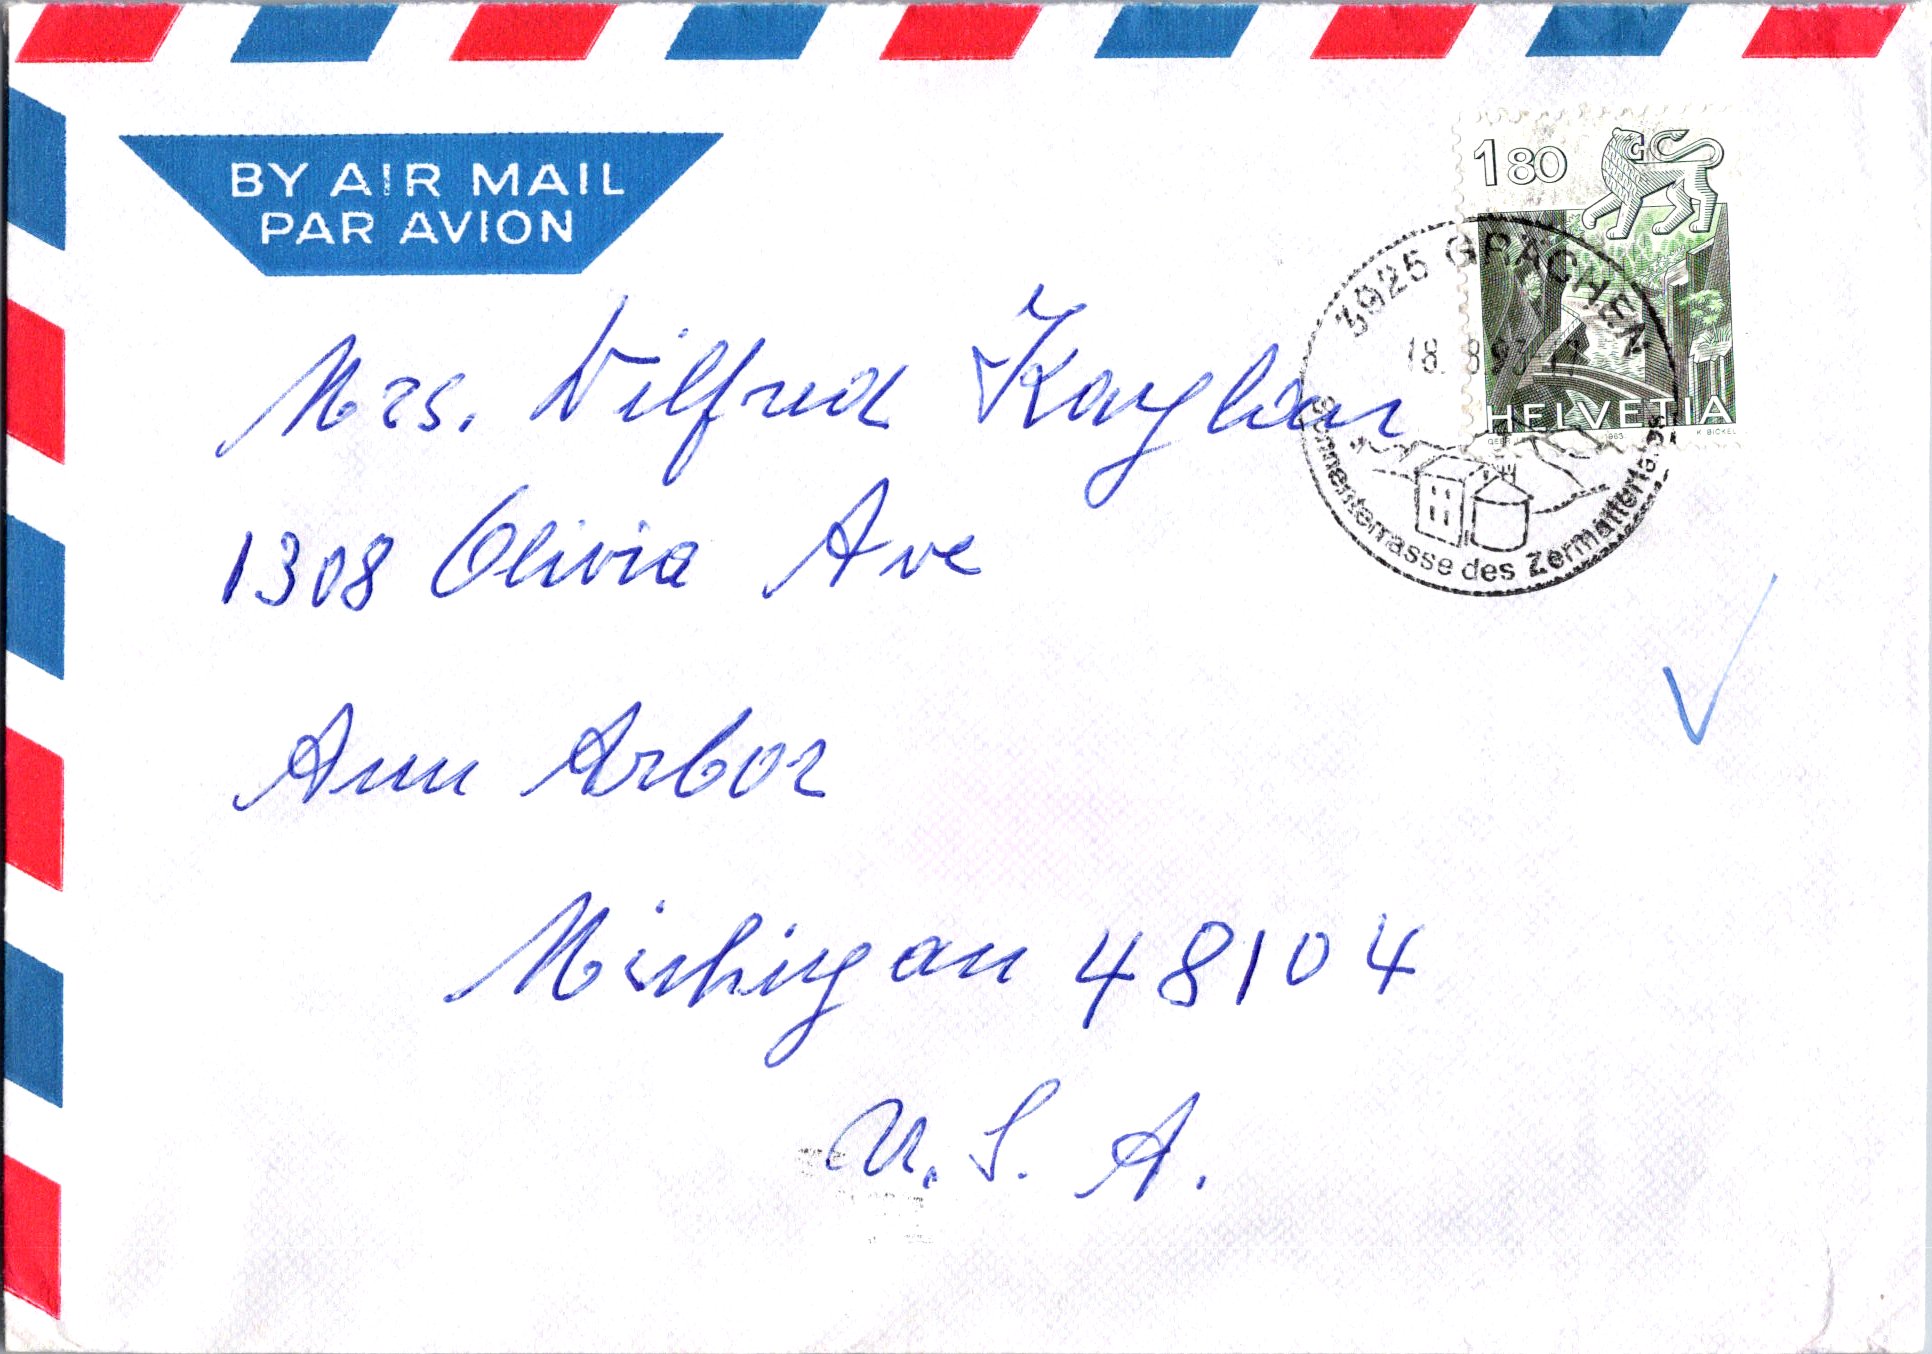 BY AIR MAIL
PAR AVION
1 80
HELVETIA
K. BICKEL
3925 GRÄCHEN
18. 8.93
Sonnenterrasse des Zermattertales
Mrs. Wilfred Kaplan
1308 Olivia Ave
Ann Arbor
Michigan 48104
U. S. A.